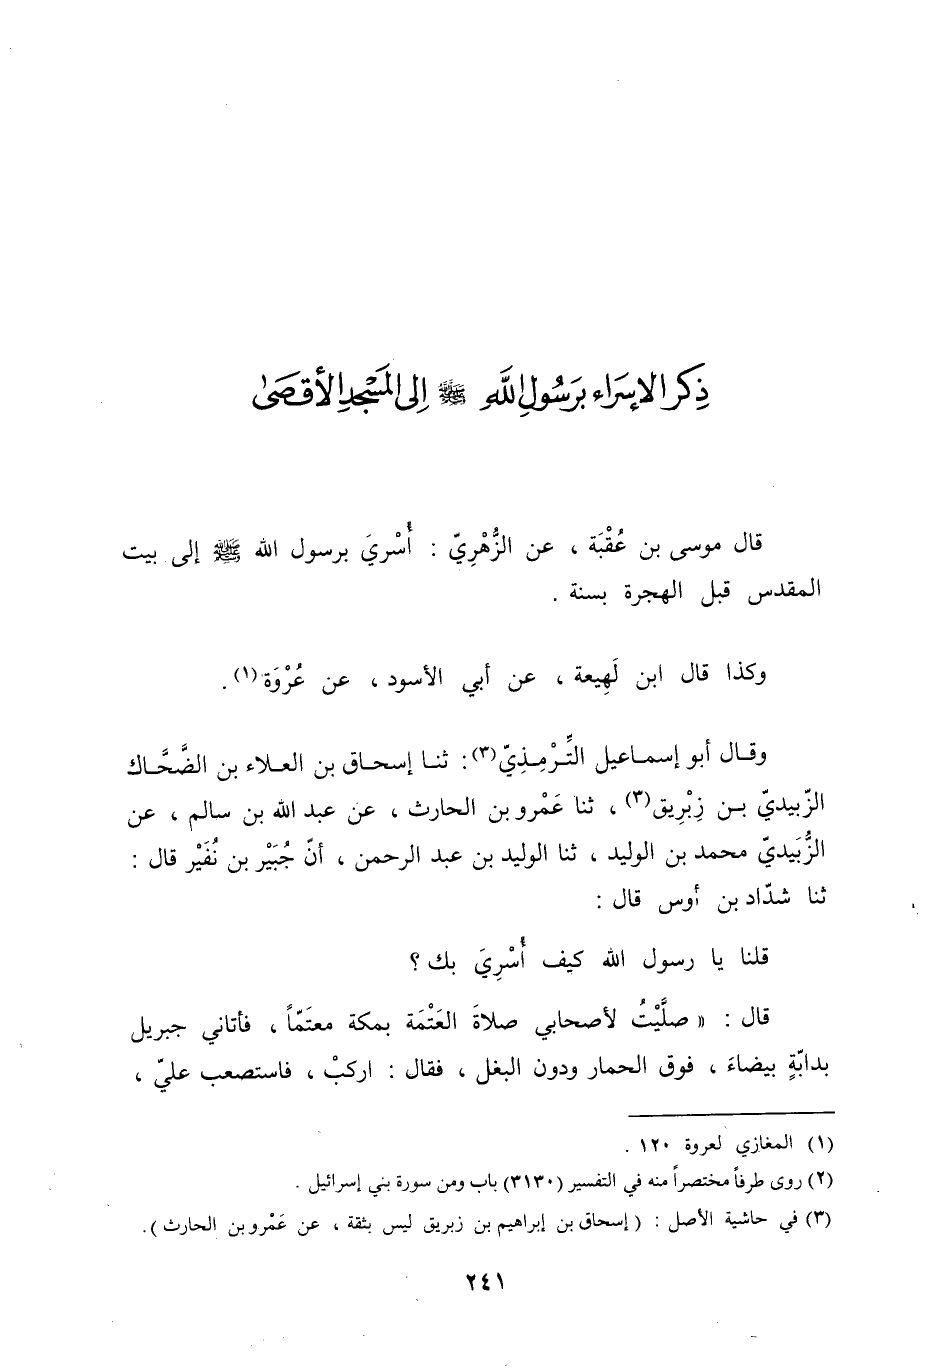 ذِكر الإسرَاء برَسُولِ اللَّهِ ﷺ إلى المَسْجد الأقصَىٰ
قال موسى بن عُقْبَة ، عن الزُّهْرِيّ : أُسْريَ برسول الله ﷺ إلى بيت
المقدس قبل الهجرة بسنة .
وكذا قال ابن لَهِيعة ، عن أبي الأسود ، عن عُرْوَة(١) .
وقال أبو إسماعيل التِّرْمِذِيّ(٣): ثنا إسحاق بن العلاء بن الضَّحَّاك
الزّبيديّ بن زِبْرِيق(٣) ، ثنا عَمْرو بن الحارث ، عن عبد الله بن سالم ، عن
الزُّبَيديّ محمد بن الوليد ، ثنا الوليد بن عبد الرحمن ، أنّ جُبَيْر بن نُفَيْر قال :
ثنا شدّاد بن أوس قال :
قلنا يا رسول الله كيف أُسْرِيَ بك ؟
قال : « صلَّيْتُ لأصحابي صلاةَ العَتْمَة بمكة معتَمّاً ، فأتاني جبريل
بدابّةٍ بيضاءَ ، فوق الحمار ودون البغل ، فقال : اركبْ ، فاستصعب عليّ ،
(١) المغازي لعروة ١٢٠ .
(٢) روى طرفاً مختصراً منه في التفسير (٣١٣٠) باب ومن سورة بني إسرائيل .
(٣) في حاشية الأصل : ( إسحاق بن إبراهيم بن زبريق ليس بثقة ، عن عَمْرو بن الحارث ).
٢٤١